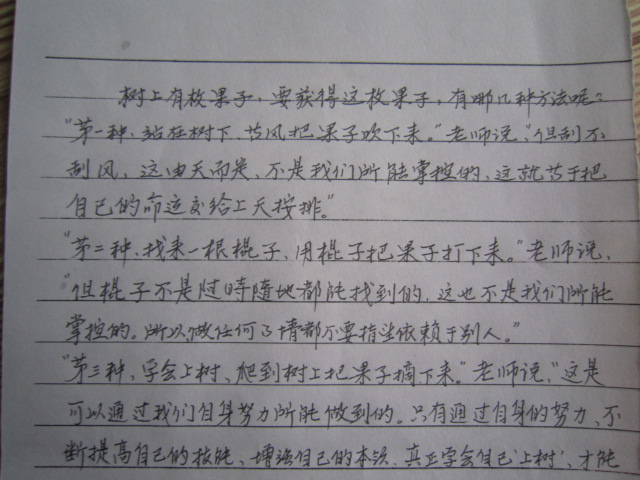 树上有枚果子，要获得这枚果子，有哪几种方法呢？
“第一种，站在树下，等风把果子吹下来。”老师说，“但刮不
刮风，这由天而定，不是我们所能掌控的，这就等于把
自己的命运交给上天按排。”
“第二种，找来一根棍子，用棍子把果子打下来。”老师说，
“但棍子不是随时随地都能找到的，这也不是我们所能
掌控的。所以做任何事情都不要指望依赖于别人。”
“第三种，学会上树，爬到树上把果子摘下来。”老师说，“这是
可以通过我们自身努力所能做到的。只有通过自身的努力，不
断提高自己的技能，增强自己的本领，真正学会自己‘上树’，才能